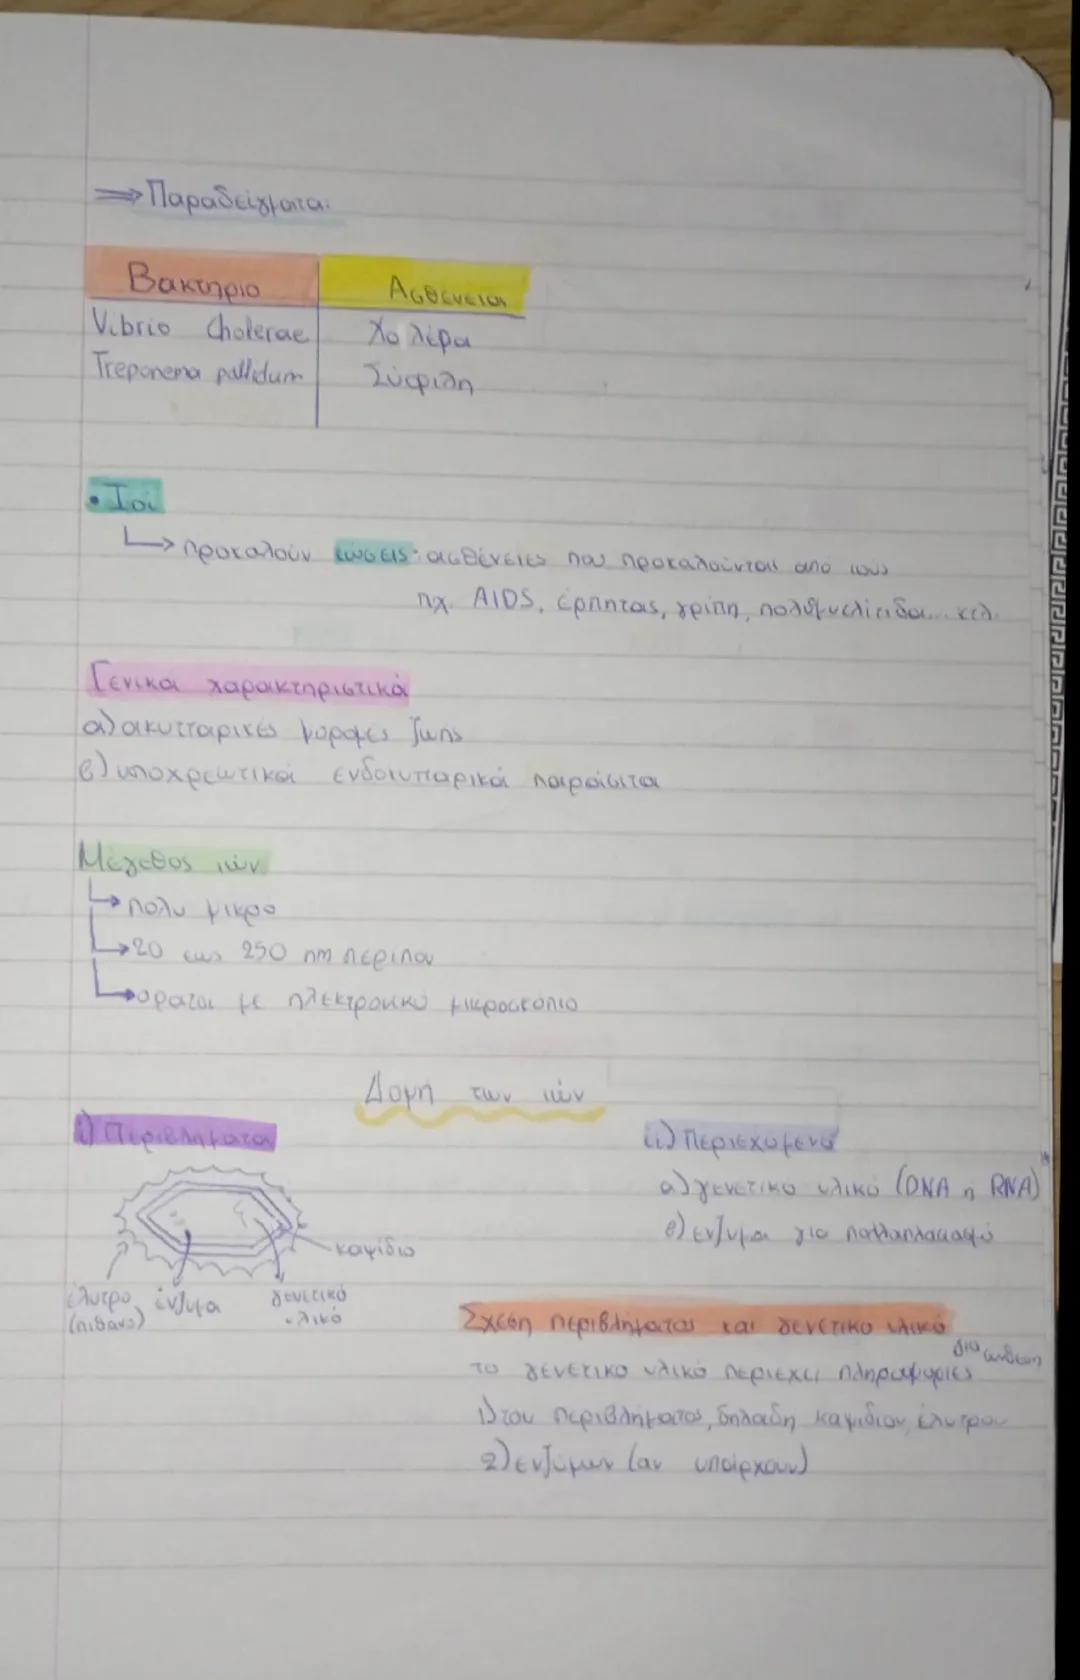 ⇒ Παραδείγματα:
Βακτήριο Ασθένεια
Vibrio Cholerae Χολέρα
Treponema pallidum Σύφιλη
• Ιοί
↳ προκαλούν ιώσεις: ασθένειες που προκαλούνται από ιούς
πχ. AIDS, έρπητας, γρίπη, πολυομυελίτιδα... κτλ.
Γενικά χαρακτηριστικά
α) ακυτταρικές μορφές ζωής
β) υποχρεωτικά ενδοκυτταρικά παράσιτα
Μέγεθος ιών
↳ πολύ μικρό
↳ 20 εως 250 nm περίπου
↳ ορατοι με ηλεκτρονικό μικροσκόπιο
Δομή των ιών
i) Περιβλήματα
καψίδιο
έλυτρο (πιθανό)
ένζυμα
γενετικό υλικό
ii) Περιεχόμενο
α) γενετικό υλικό (DNA ή RNA)
β) ενζυμα για πολλαπλασιασμό
Σχέση περιβλήματος και γενετικό υλικό
το γενετικο υλικό περιεχει πληροφορίες για σύνθεση
1) του περιβλήματος, δηλαδη καψιδιου, έλυτρου
2) ενζύμων (αν υπάρχουν)